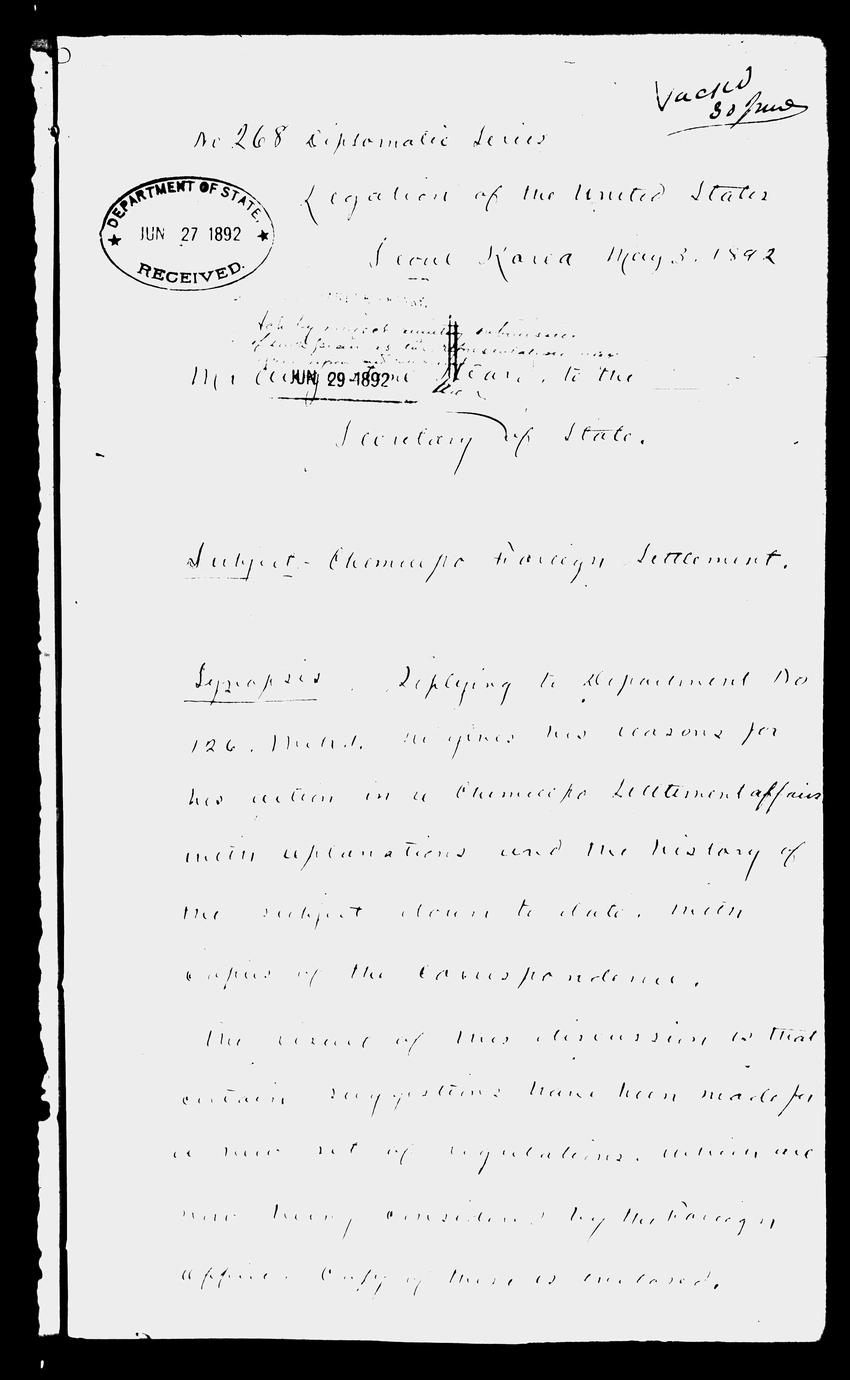 Vackd
30 June
No 268 Diplomatic Series
DEPARTMENT OF STATE,
JUN 27 1892
RECEIVED.
Legation of the United States
Seoul Korea May 3. 1892
JUN 29 1892
Mr to the
Secretary of State.
Subject - Chemulpo Foreign Settlement.
Synopsis. Replying to Department No
126. March 1. He gives his reasons for
his action in a Chemulpo Settlement affairs
with explanations and the history of
the subject down to date. With
copies of the correspondence.
The result of this discussion is that
certain suggestions have been made for
a new set of regulations. which are
now being considered by the Foreign
Office. Copy of these is enclosed.